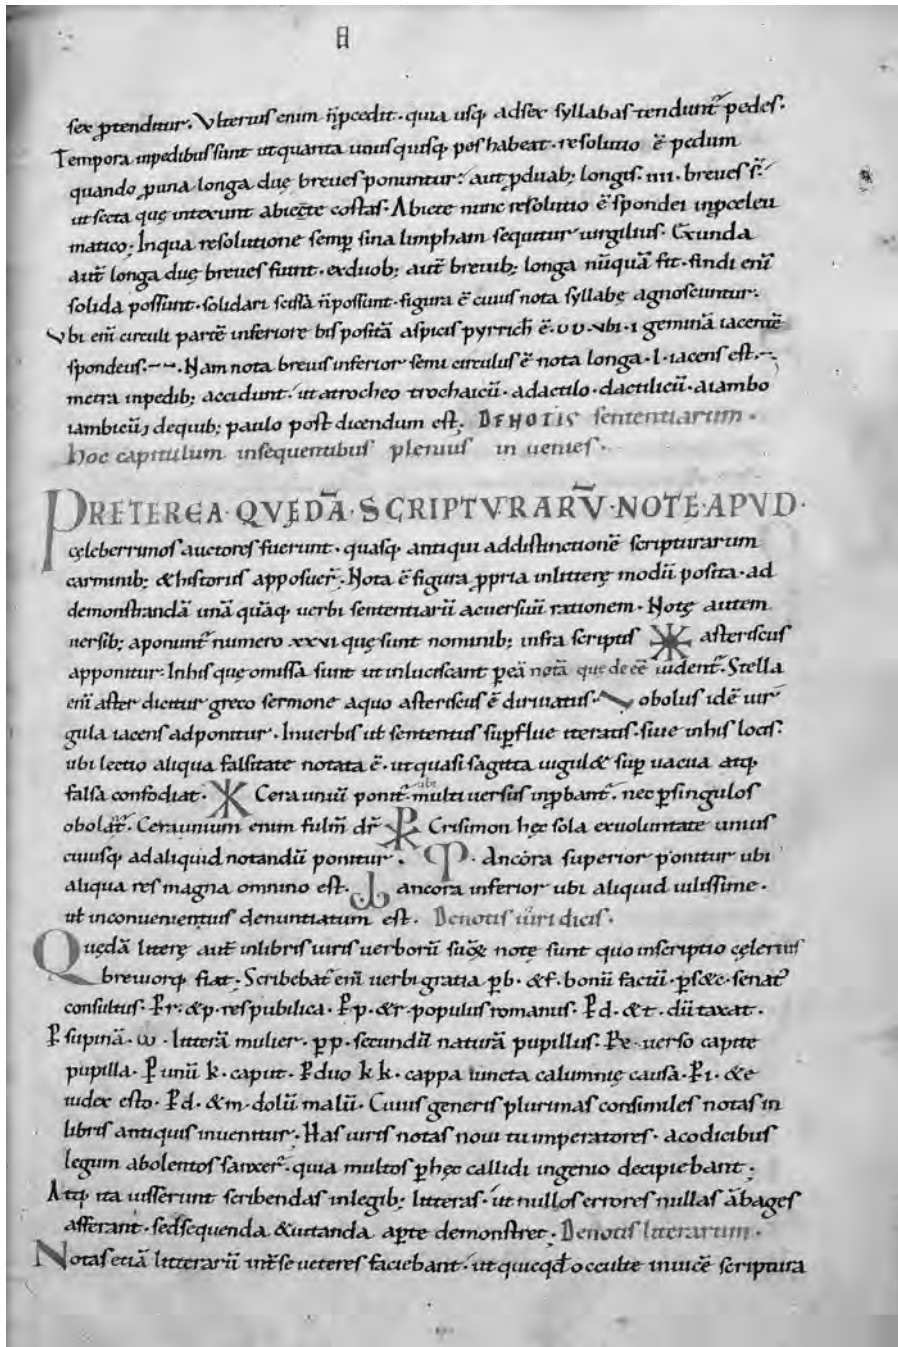 sex ꝓtenditur. Vlterius enim n̄ p̄cedit · quia usq; ad sex syllabas tendunt̄ pedes.
Tempora in pedibus sunt ut quanta unus quisq; pes habeat · resolutio ē pedum
quando ꝓ una longa duę breues ponuntur. aut ꝓ duab; longis · IIII · breues s̄.
ut secta quę intexunt abiecte costas · Abiete nunc resolutio ē spondei in ꝓceleu
matico. In qua resolutione semꝑ sina limpham sequitur uirgilius · Ex unda
aut̄ longa duę breues fiunt · ex duob; aut̄ breuib; longa nūquā fit · findi enī
solida possunt · solidari scissa n̄ possunt · figura ē cuius nota syllabę agnoscuntur.
Vbi enī circuli partē inferiorē bis positā aspicis pyrrich ē · υ υ · vbi · I geminā iacentē
spondeus. – – . Nam nota breuis inferior semi circulus ē nota longa · I · iacens est. –.
metra in pedib; accidunt. ut a trocheo trochaicū · a dactilo · dactilicū · a iambo
iambicū, de quib; paulo post dicendum est. DE NOTIS sententiarum ·
hoc capitulum in sequentibus plenius in uenies ·
PRETEREA · QVEDĀ · SCRIPTVRARV̄ · NOTE · APVD ·
cęleberrimos auctores fuerunt · quasq; antiqui ad distinctionē scripturarum
carminib; & historiis apposuer̄. Nota ē figura ꝓpria in litterę modū posita · ad
demonstrandā unā quāq; uerbi sententiarū ac uersiuū rationem · Notę autem
uersib; aponunt̄ numero XXVI quę sunt nominib; infra scriptis ※ asteriscus
apponitur. In his quę omissa sunt ut inluciscant ꝑ eā notā que de eē uident̄. Stella
enī aster dicitur greco sermone a quo asteriscus ē diriuatus · obolus idē uir
gula iacens adponitur · In uerbis uł sententiis suꝑflue iteratis. siue in his locis.
ubi lectio aliqua falsitate notata ē · ut quasi sagitta uigul& suꝑ uacua atq;
falsa confodiat · Ceraunium ponit̄ ubi multi uersus inꝓbant̄ · nec ꝑ singulos
obolat̄. Ceraunium enim fulm̄ dr̄ ⳩ Crisimon hęc sola ex uoluntate unius
cuiusq; ad aliquid notandū ponitur. · Ancora superior ponitur ubi
aliqua res magna omnino est. ancora inferior ubi aliquid uilissime ·
uł inconuenientius denuntiatum est. De notis iuridicis ·
Quędā litterę aut̄ in libris iuris uerborū suoꝝ note sunt quo inscriptio cęlerius
breuiorq; fiat. Scribebat̄ enī uerbi gratia ꝑ b · & f · bonū factū · ꝑ s & c · senat̄
consultus. Pr. & p · res publica · P p · & r · populus romanus. P d · & t · dū taxat ·
P supinā · ω · litterā mulier · ꝑ p · secundū naturā pupillus. Pe · uerso capite
pupilla · P unū k · caput · P duo k k · cappa iuncta calumnię causa · P i · & e
iudex esto · P d · & m · dolū malū · Cuius generis plurimas consimiles notas in
libris antiquis inuenitur. Has iuris notas noui tu imperatores · a codicibus
legum abolentos sanxer̄ · quia multos ꝑ hęc callidi ingenio decipiebant.
Atq; ita iusserunt scribendas in legib; litteras. ut nullos errores nullas ābages
afferant · sed sequenda & uitanda aꝑte demonstret. De notis literarum ·
Notas etiā litterarū int̄ se ueteres faciebant · ut quicqđ occulte inuicē scriptura